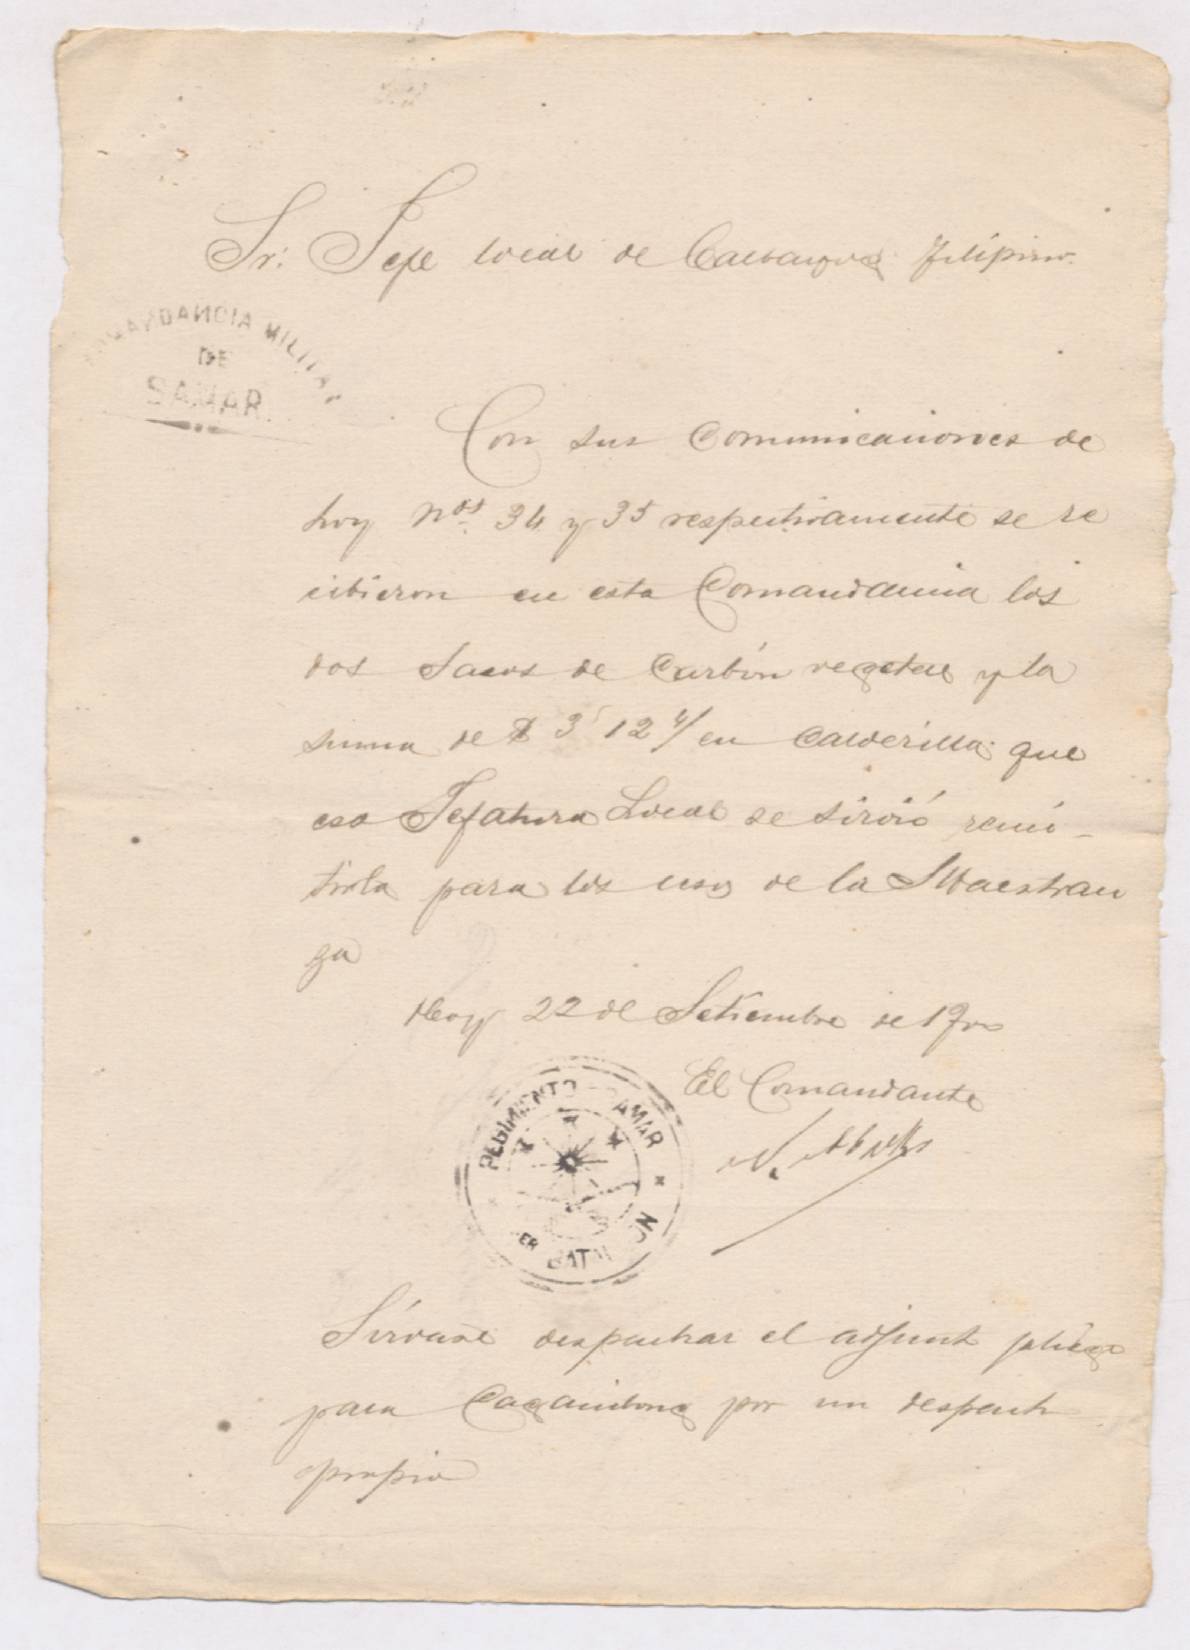 Sr. Jefe local de Calbayog Filipino.
COMANDANCIA MILITAR
DE
SAMAR.
Con sus Comunicaciones de
hoy Nos. 34 y 35 respectivamente se re
cibieron en esta Comandancia los
dos Sacos de Carbón vegetal y la
suma de $ 3 12 4/ en Calderilla que
esa Jefatura Local se sirvió remi-
tirla para los usos de la Maestran
za
Hoy 22 de Setiembre de 1900
El Comandante
REGIMIENTO SAMAR
ER BATALLON
Sírvase despachar el adjunto pliego
para por un despacho
propio